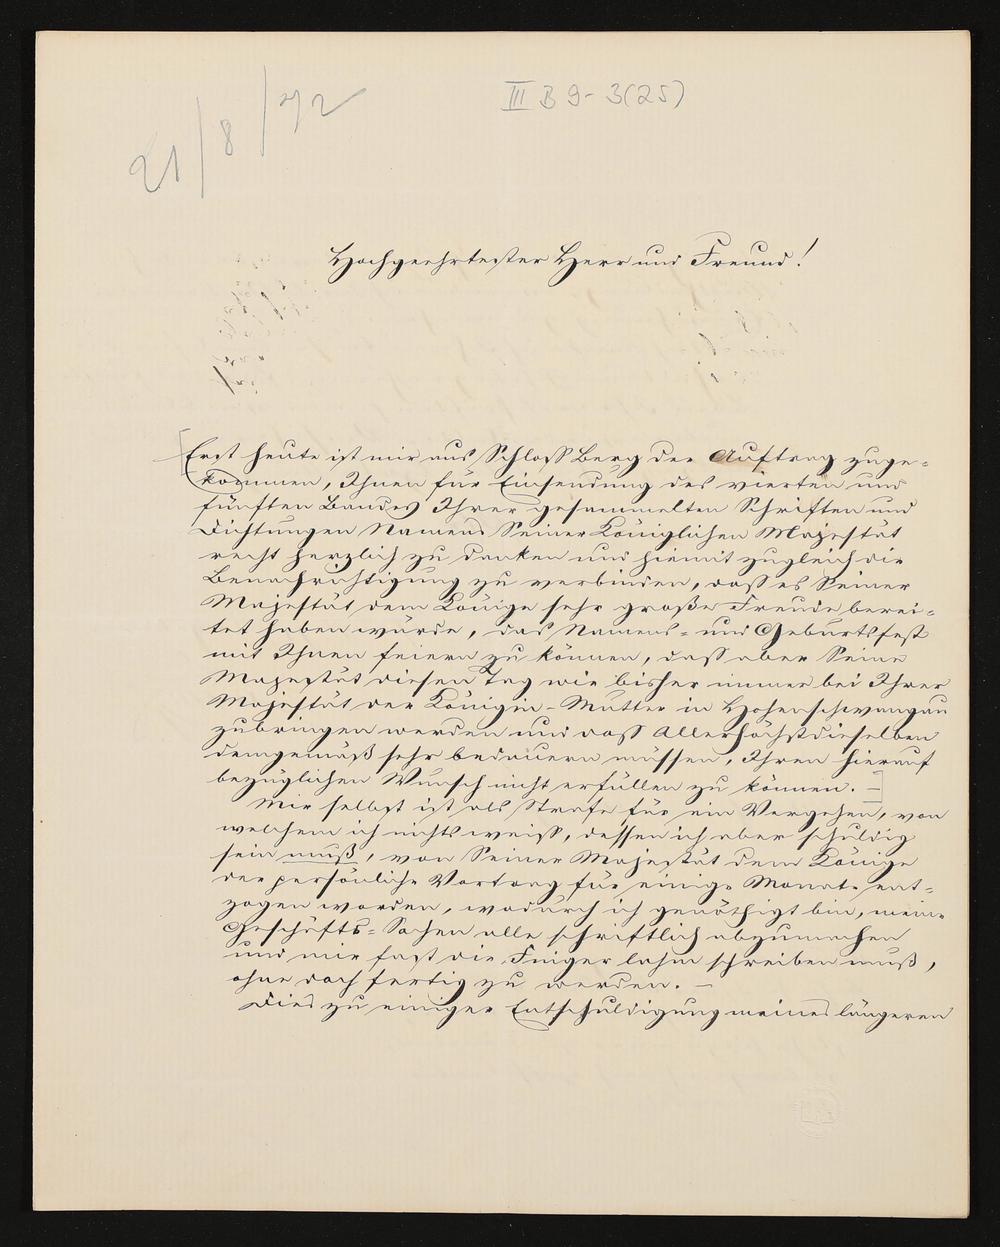 21/8/72
III B 9-3(25)
Hochgeehrtester Herr und Freund!
Erst heute ist mir aus Schloß Berg der Auftrag zuge-
kommen, Ihnen für Einsendung des vierten und
fünften Bandes Ihrer gesammelten Schriften und
Dichtungen Namens Seiner Königlichen Majestät
recht herzlich zu danken und hiemit zugleich die
Benachrichtigung zu verbinden, daß es Seiner
Majestät dem Könige sehr große Freude berei-
tet haben würde, das Namens- und Geburtsfest
mit Ihnen feiern zu können, daß aber Seine
Majestät diesen Tag wie bisher immer bei Ihrer
Majestät der Königin-Mutter in Hohenschwangau
zubringen werden und daß Allerhöchstdieselben
demgemäß sehr bedauern müssen, Ihren hierauf
bezüglichen Wunsch nicht erfüllen zu können. –
Mir selbst ist als Strafe für ein Vergehen, von
welchem ich nichts weiß, dessen ich aber schuldig
sein muß, von Seiner Majestät dem Könige
der persönliche Vortrag für einige Monate ent-
zogen worden, wodurch ich genöthigt bin, meine
Geschäfts-Sachen alle schriftlich abzumachen
und mir fast die Finger lahm schreiben muß,
ohne doch fertig zu werden. –
Dies zu einiger Entschuldigung meines längeren